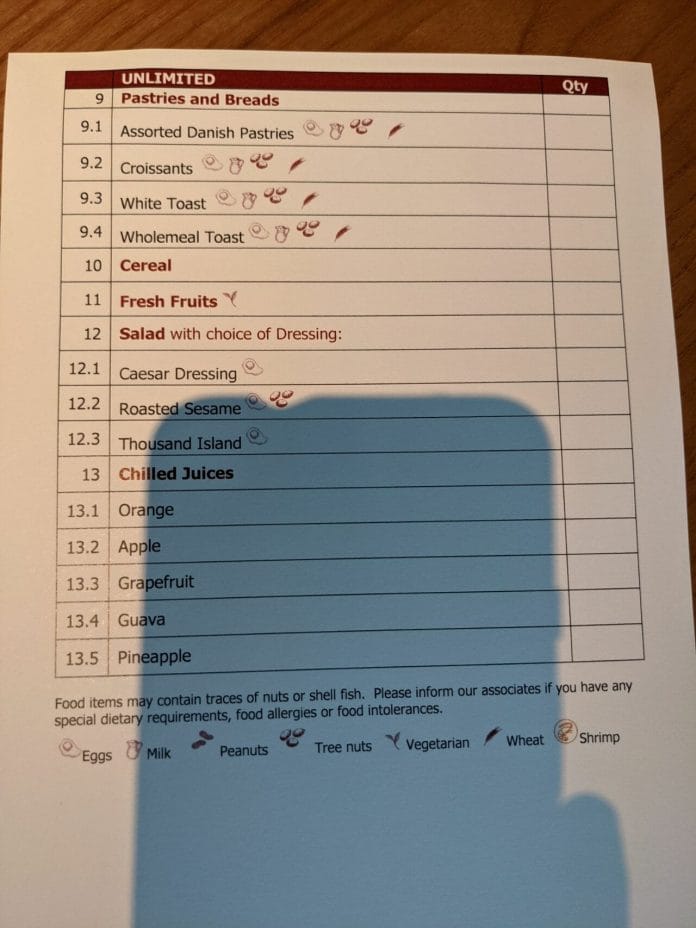 UNLIMITED Qty
9 Pastries and Breads
9.1 Assorted Danish Pastries
9.2 Croissants
9.3 White Toast
9.4 Wholemeal Toast
10 Cereal
11 Fresh Fruits
12 Salad with choice of Dressing:
12.1 Caesar Dressing
12.2 Roasted Sesame
12.3 Thousand Island
13 Chilled Juices
13.1 Orange
13.2 Apple
13.3 Grapefruit
13.4 Guava
13.5 Pineapple
Food items may contain traces of nuts or shell fish. Please inform our associates if you have any
special dietary requirements, food allergies or food intolerances.
Eggs Milk Peanuts Tree nuts Vegetarian Wheat Shrimp